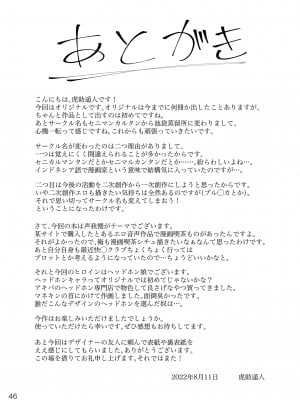 あとがき
こんにちは、虎助遥人です!
今回はオリジナルです。オリジナルは今までに何冊か出したことありますが、
ちゃんと作品として出すのは初めてですね。
あとサークル名もセニマンカルタンから池袋蒸留所に変わりまして、
心機一転って感じですね。これからも頑張っていきたいです。
サークル名が変わったのは二つ理由がありまして、
一つは覚えにくく間違えられることが多かったからです。
セニカルマンタンだとかセニマルカンタンだとか……、紛らわしいよね…
インドネシア語で漫画家という意味で結構気に入っていたのですが…
二つ目は今後の活動を二次創作から一次創作にしようと思ったからです。
いや二次創作エロも描きたい気持ちは全然あるのですが(ブル〇カとか)。
それで思い切ってサークル名も変えてしまおう!
ということになったわけです。
さて、今回の本は声我慢がテーマでございます。
某サイトで購入したとあるエロ音声作品で漫画喫茶ものがあったんですよ。
それがよかったので、俺も漫画喫茶シチュ描きたいなぁなんて思ったわけです。
あと自分自身も最近快〇クラブちょくちょく行っては
プロットとか考えるようになっていたので…ちょうどいいかなと。
それと今回のヒロインはヘッドホン娘でございます。
ヘッドホンキャラってオリジナルでは初めてじゃないかな?
アキバのヘッドホン専門店で物色して良さげなやつ買ってきました。
マネキンの首にかけて作画しました。面倒臭かったです。
誰だこんなデザインのヘッドホンを選んだ奴は…。
今作はお楽しみいただけましたでしょうか。
使っていただけたら幸いです。ぜひ感想もお待ちしてます。
あと今回デザイナーの友人に頼んで表紙や裏表紙を
ええ感じにしてもらいました。ありがとうございます。
この場を借りてお礼申し上げます。それではまた!
2022年8月11日 虎助遥人
46